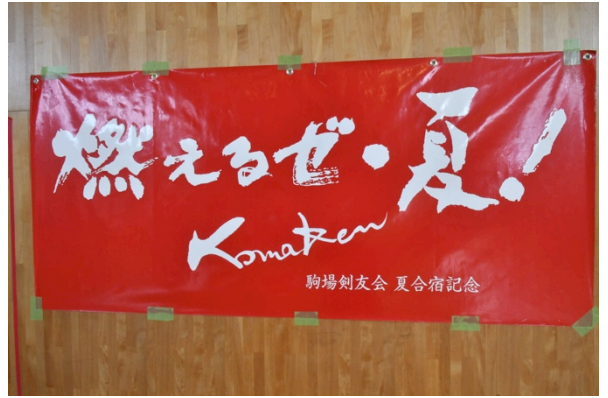 燃えるぜ・夏!
Komaken
駒場剣友会 夏合宿記念